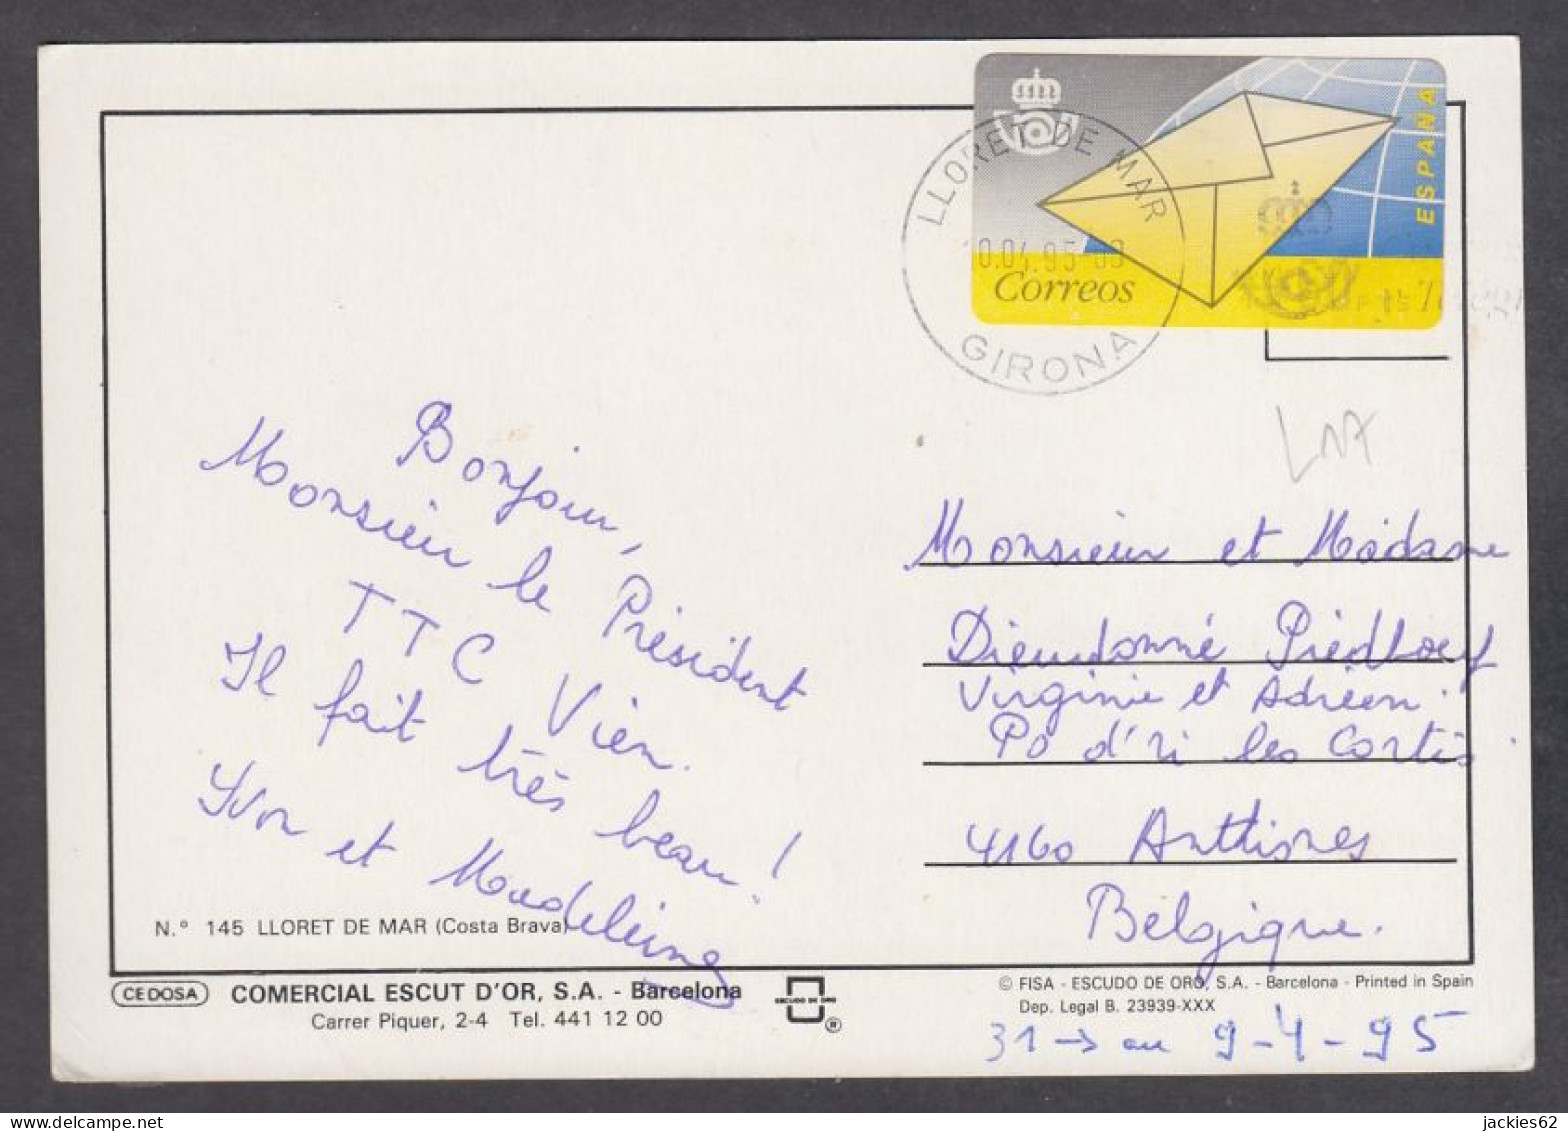 ESPAÑA
LLORET DE MAR
0.04.95
Correos
GIRONA
Bonjour,
Monsieur le Président
TTC Vien.
Il fait très beau!
Yvon et Madeleine
Monsieur et Madame
Dieudonné Piedboeuf
Virginie et Adrien.
Po d'ri les Cortis
4160 Anthisnes
Belgique.
N.º 145 LLORET DE MAR (Costa Brava)
CEDOSA COMERCIAL ESCUT D'OR, S.A. - Barcelona
Carrer Piquer, 2-4 Tel. 441 12 00
ESCUDO DE ORO ®
© FISA - ESCUDO DE ORO, S.A. - Barcelona - Printed in Spain
Dep. Legal B. 23939-XXX
31 → au 9-4-95
jackies62